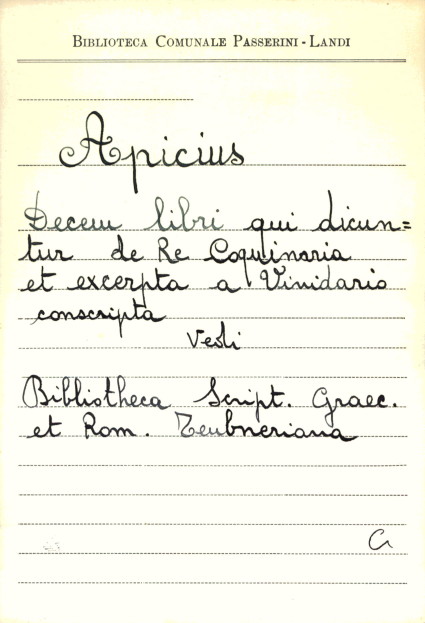 BIBLIOTECA COMUNALE PASSERINI - LANDI
Apicius
Decem libri qui dicun=
tur de Re Coquinaria
et excerpta a Vinidario
conscripta
Vedi
Bibliotheca Script. Graec.
et Rom. Teubneriana